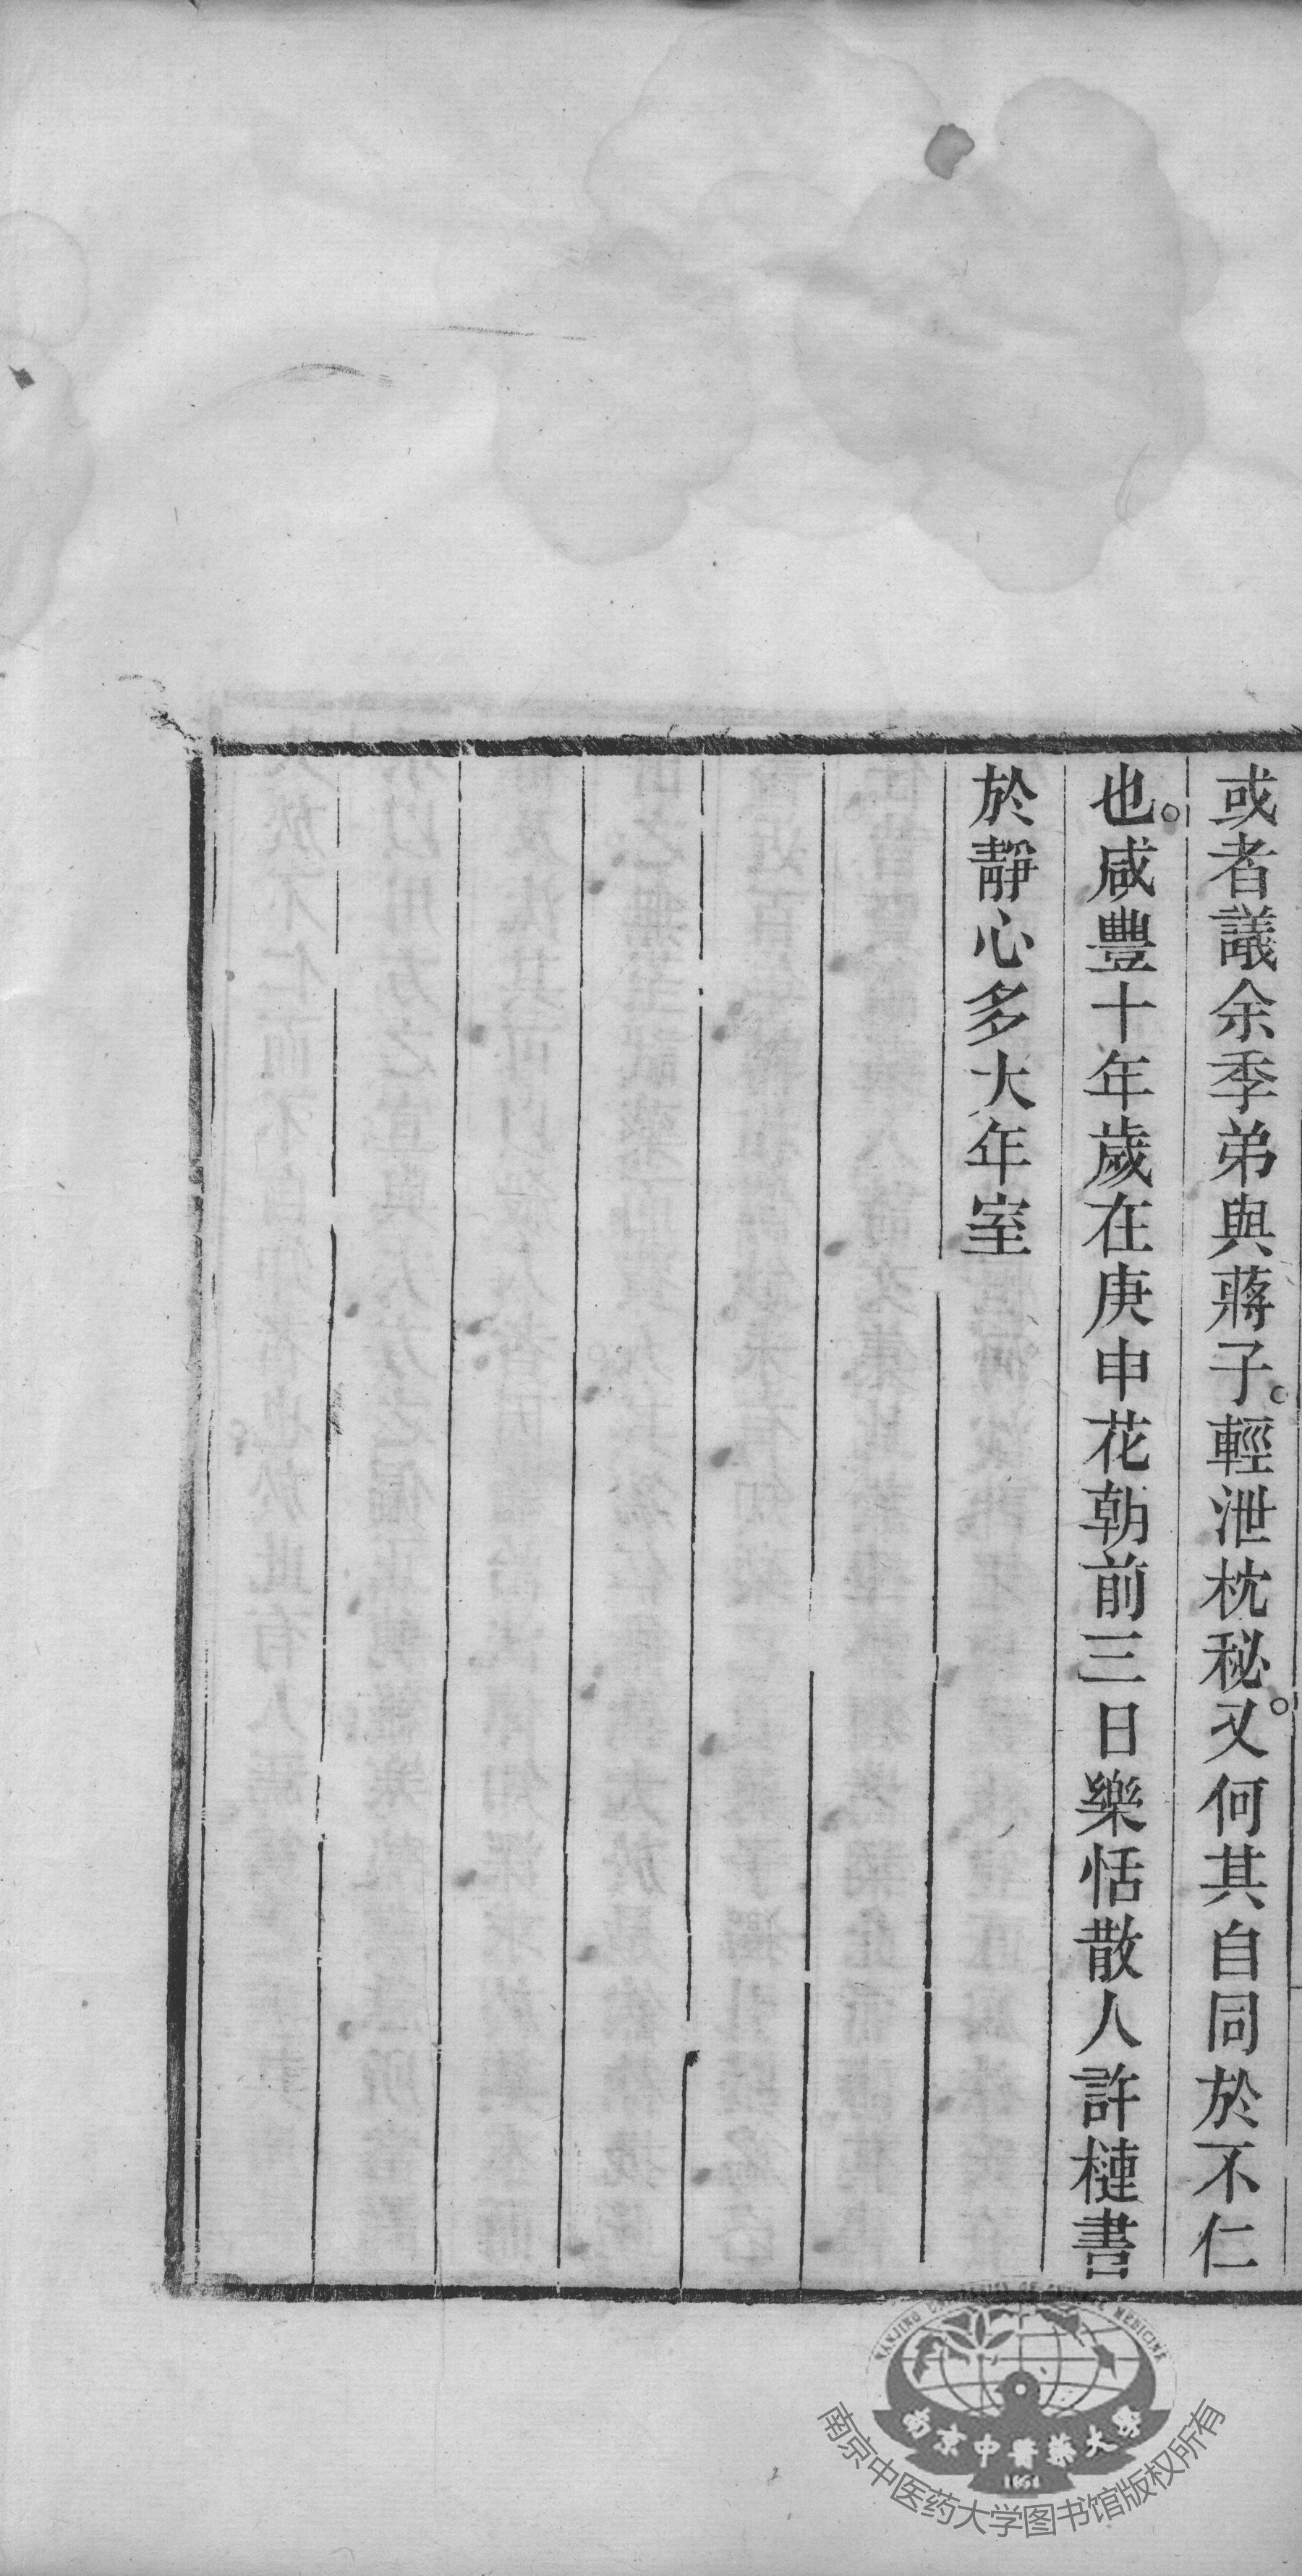 或者議余季弟與蔣子。輕泄枕秘。又何其自同於不仁
也。咸豐十年歲在庚申花朝前三日樂恬散人許槤書
於靜心多大年室
NANJING UNIVERSITY OF CHINESE MEDICINE
南京中醫藥大學
1954
南京中医药大学图书馆版权所有